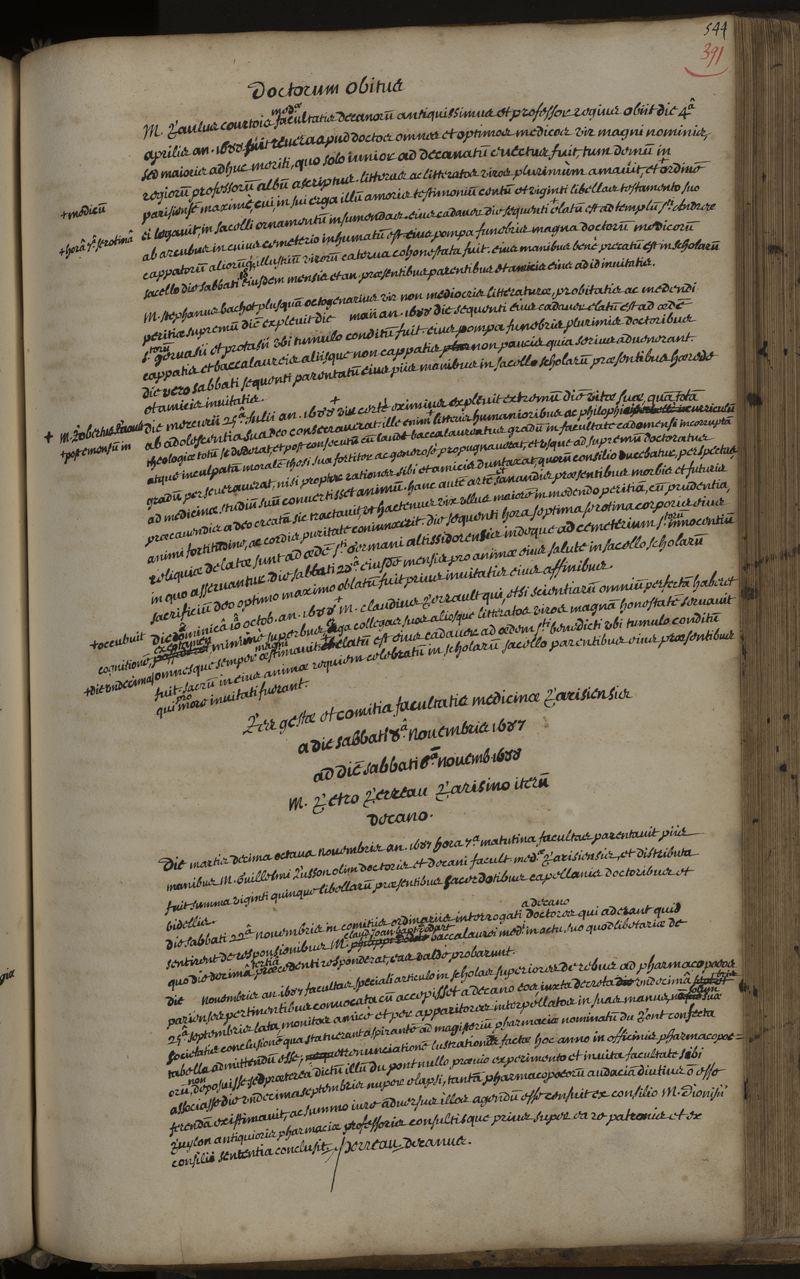 544
391
Doctorum obitus
M. Paulus courtois facultatis med.æ decanorū antiquissimus et professor regius obiit die 4ª
aprilis an. 1688 fuit revera apud doctos omnes et optimos medicos vir magni nominis,
sed maioris adhuc meriti, quo solo iunior ad decanatū evectus fuit, tum demū in
regiorū professorū albū ascriptus. litteras ac litteratos viros plurimum amavit, et ordinē
+ medicū
parisiensē maximè, cui in sui erga illū amoris testimonium centū et viginti libellas testamento suo
ei legavit, in sacelli ornamentū insumendas. eius cadaver die sequenti + elatū est ad templū sti andreæ
+ horâ 7ª serotinâ
ab arcubus in cuius cemeterio inhumatū est eius pompa funebris magna doctorū medicorū
cappatorū aliorūq illustriū virorū caterva cohonestata fuit. eius manibus benè precatū est in scholarū
sacello die sabbati eiusdem mensis et an. præsentibus parentibus et amicis eius ad id invitatis.
M. stephanus bachot plusquā octogenarius vir non mediocris litteraturæ, probitatis ac medendi
peritiæ supremū diē explevit die maii an. 1688 die sequenti eius cadaver elatū est ad ædē
storū gervasii et protasii ubi tumulo conditū fuit. eius pompa funebris plurimis doctoribus
cappatis et baccalaureis aliisque non cappatis non paucis quia serius advenerant.
die vero sabbati sequenti parentatū eius piis manibus in sacello scholarū præsentibus hærede
et amicis invitatis.
+ M. Robertus
die mercurii 25ª Julii an. 1688 + vir certè eximius explevit extremū diē vitæ suæ, quā totā
ab adolescentia sua deo consecraverat. ille enim + litteris humanioribus ac philosophi curriculū
+ post emensū in
theologiæ totū se dederat, et post consecutū cū laude baccalaureatus gradū in facultate cadomensi incorruptā
atque inculpatā moralē thesi sua fortiter ac generosè propugnaverat, et usque ad supremū doctoratus
gradū perseveraverat, nisi propter rationes sibi et amicis duntaxat, quorū consilio ducebatur, perspectas
ad medicinæ studiū suū convertisset animū. hanc autē artē sanandis præsentibus morbis et futuris
præcavendis a deo creatū sic tractavit, ut hactenus vix ullus maiorē in medendo peritiā, cū prudentia,
animi fortitudine, ac cordis puritate coniunxerit. die sequenti hora septima serotina corporis eius
reliquiæ delatæ sunt ad ædē sti germani altissidorensis indeque ad cemeterium storū innocentiū
in quo asservantur. die sabbati 28ª eiusdē mensis pro animæ eius salute in sacello scholarū
sacrificiū deo optimo maximo oblatū fuit prius invitatis eius affinibus.
+ occubuit
die dominicâ 10ª octob. an. 1688 + M. claudius Perrault qui, etsi scientiarū omniū perfectā haberet
cognitionē, minimè superbus erga collegas suos aliosque litteratos viros magnā honestatē servavit
+ die undecima
omnesque semper magni æstimavit. + elatū est eius cadaver ad ædem sti benedicti ubi tumulo conditū
fuit. sacrū in eius animæ requiem celebratū in scholarū sacello parentibus eius præsentibus
qui more invitati fuerant.
Res gestæ et comitia facultatis medicinæ Parisiensis
a die sabbati 8ª novembris 1687
ad diē sabbati 6ª novemb 1688
M. Petro Perreau Parisino iterū
decano.
Die martis decima octava novembris an. 1687 hora 7ª matutina facultas parentavit piis
manibus M. Guillelmi Pusson olim doctoris et decani facult. med.æ Parisiensis, et distributa
fuit summa viginti quinque libellarū præsentibus sacerdotibus capellanis doctoribus et
bidellis.
die sabbati 22ª novembris in comitiis ordinariis interrogati a decano doctores qui aderant quid
sentirent de responsionibus M. claud. joan. bapt. dodart baccalaurei med. in actu suo quodlibetariæ de
quo die decima tertia præcedenti responderat, eas valdè probarunt.
die novembris an. 1687 facultas speciali articulo in scholas superiores de rebus ad pharmacopœos
parisienses pertinentibus convocata cū accepisset a decano eos iuxta decreta die undecimâ septembris
25ª septembris lata, monitos amicè et per apparitores interpellatos in suas manus, solum sua
societatis conclusionē qua statuerant aspirantē ad magisteriū pharmaciæ nominatū du Pont confecta
tabella admittendū esse, renunciationē lustrationis factæ hoc anno in officinis pharmacopœ=
orū, non deposuisse sed præterea dictū illū du pont nullo prævio experimento et invita facultate sibi
associasse die undecima septembris nuper elapsi, tantā pharmacopœorū audaciā diutius ō esse
ferendā existimavit, ac summo iure adversus illos agendū esse censuit ex consilio M. Dionisii
Puylon antiquioris pharmaciæ professoris consultisque prius super ea re patronis et ex
consilii sententia conclusit. Perreau decanus.